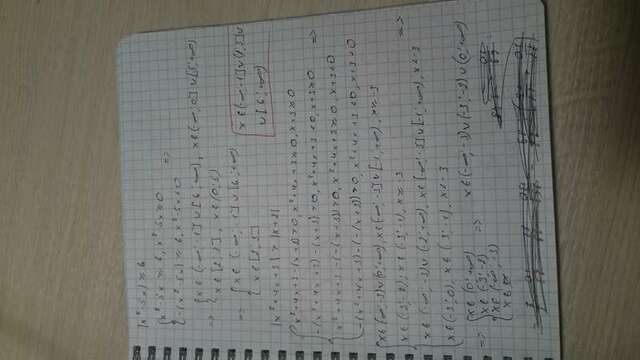 |x²-5x| ≥ 6
{ x²-5x ≥ 6, x²-5x ≥ 0
-(x²-5x) ≥ 6, x²-5x < 0 =>
=> { x∈(-∞; -1]∪[6; +∞), x∈(-∞; 0]∪[5; +∞)
x∈[2; 3], x∈(0; 5)
=> { x∈(-∞; -1]∪[6; +∞)
x∈[2; 3]
x∈(-∞; -1]∪[2; 3]∪
∪[6; +∞)
|x²+4x+3| > |x+3|
{ x²+4x+3-(x+3)>0, x²+4x+3≥0, x+3≥0
-(x²+4x+3)-(x+3)>0, x²+4x+3<0, x+3≥0
x²+4x+3-(-(x+3))>0, x²+4x+3≥0, x+3<0 =>
-(x²+4x+3)-(-(x+3))>0, x²+4x+3<0, x+3<0
{ x∈(-∞; -3)∪(0; +∞), x∈(-∞; -3]∪[-1; +∞), x≥-3
x∈(-3; -2); x∈(-3; -1), x≥-3
x∈(-∞; -3)∪(-2; +∞), x∈(-∞; -3]∪[-1; +∞), x<-3 =>
x∈(-3; 0); x∈(-3; -1), x<-3
=> { x∈(0; +∞)
x∈(-3; -2)
x∈(-∞; -3)
=> x∈(-∞; -3)∪(-3; -2)∪(0; +∞)